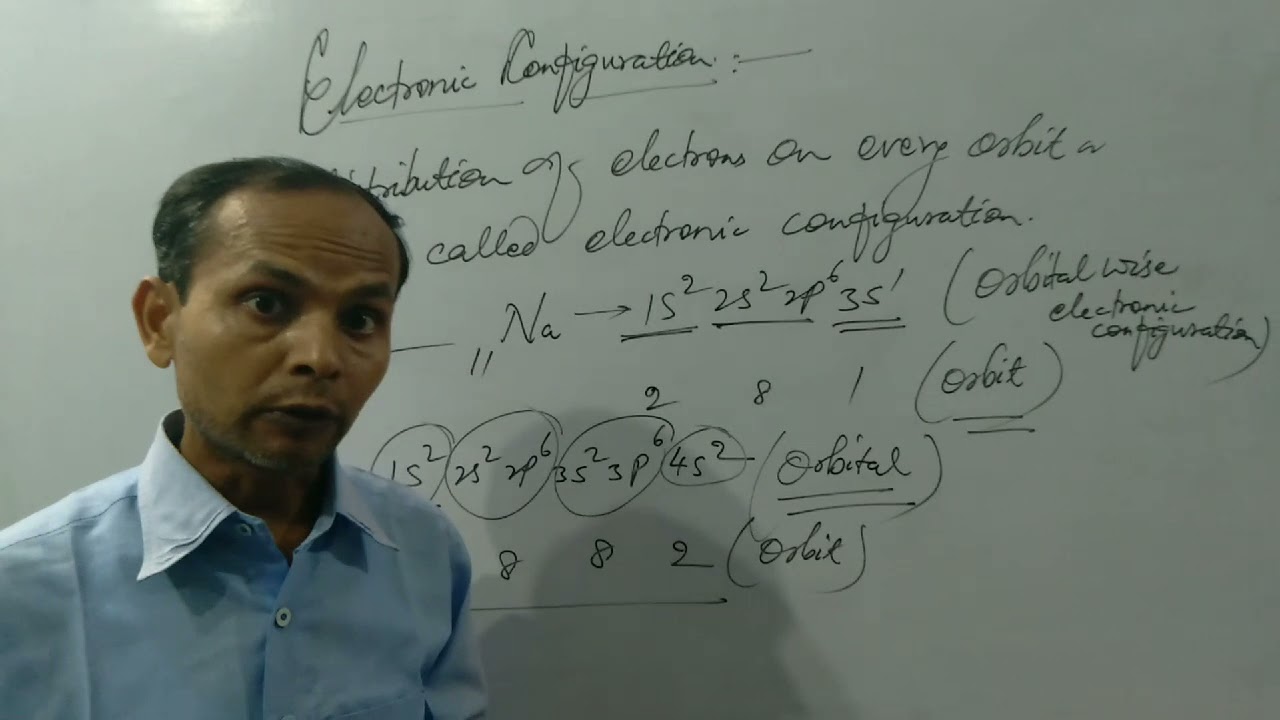 Electronic Configuration :-
tribution of electrons on every orbit
called electronic configuration.
11Na → 1S² 2S² 2P⁶ 3S¹ (Orbital wise electronic configuration)
2 8 1 (Orbit)
1S² 2S² 2P⁶ 3S² 3P⁶ 4S² - (Orbital)
8 8 2 (Orbit)